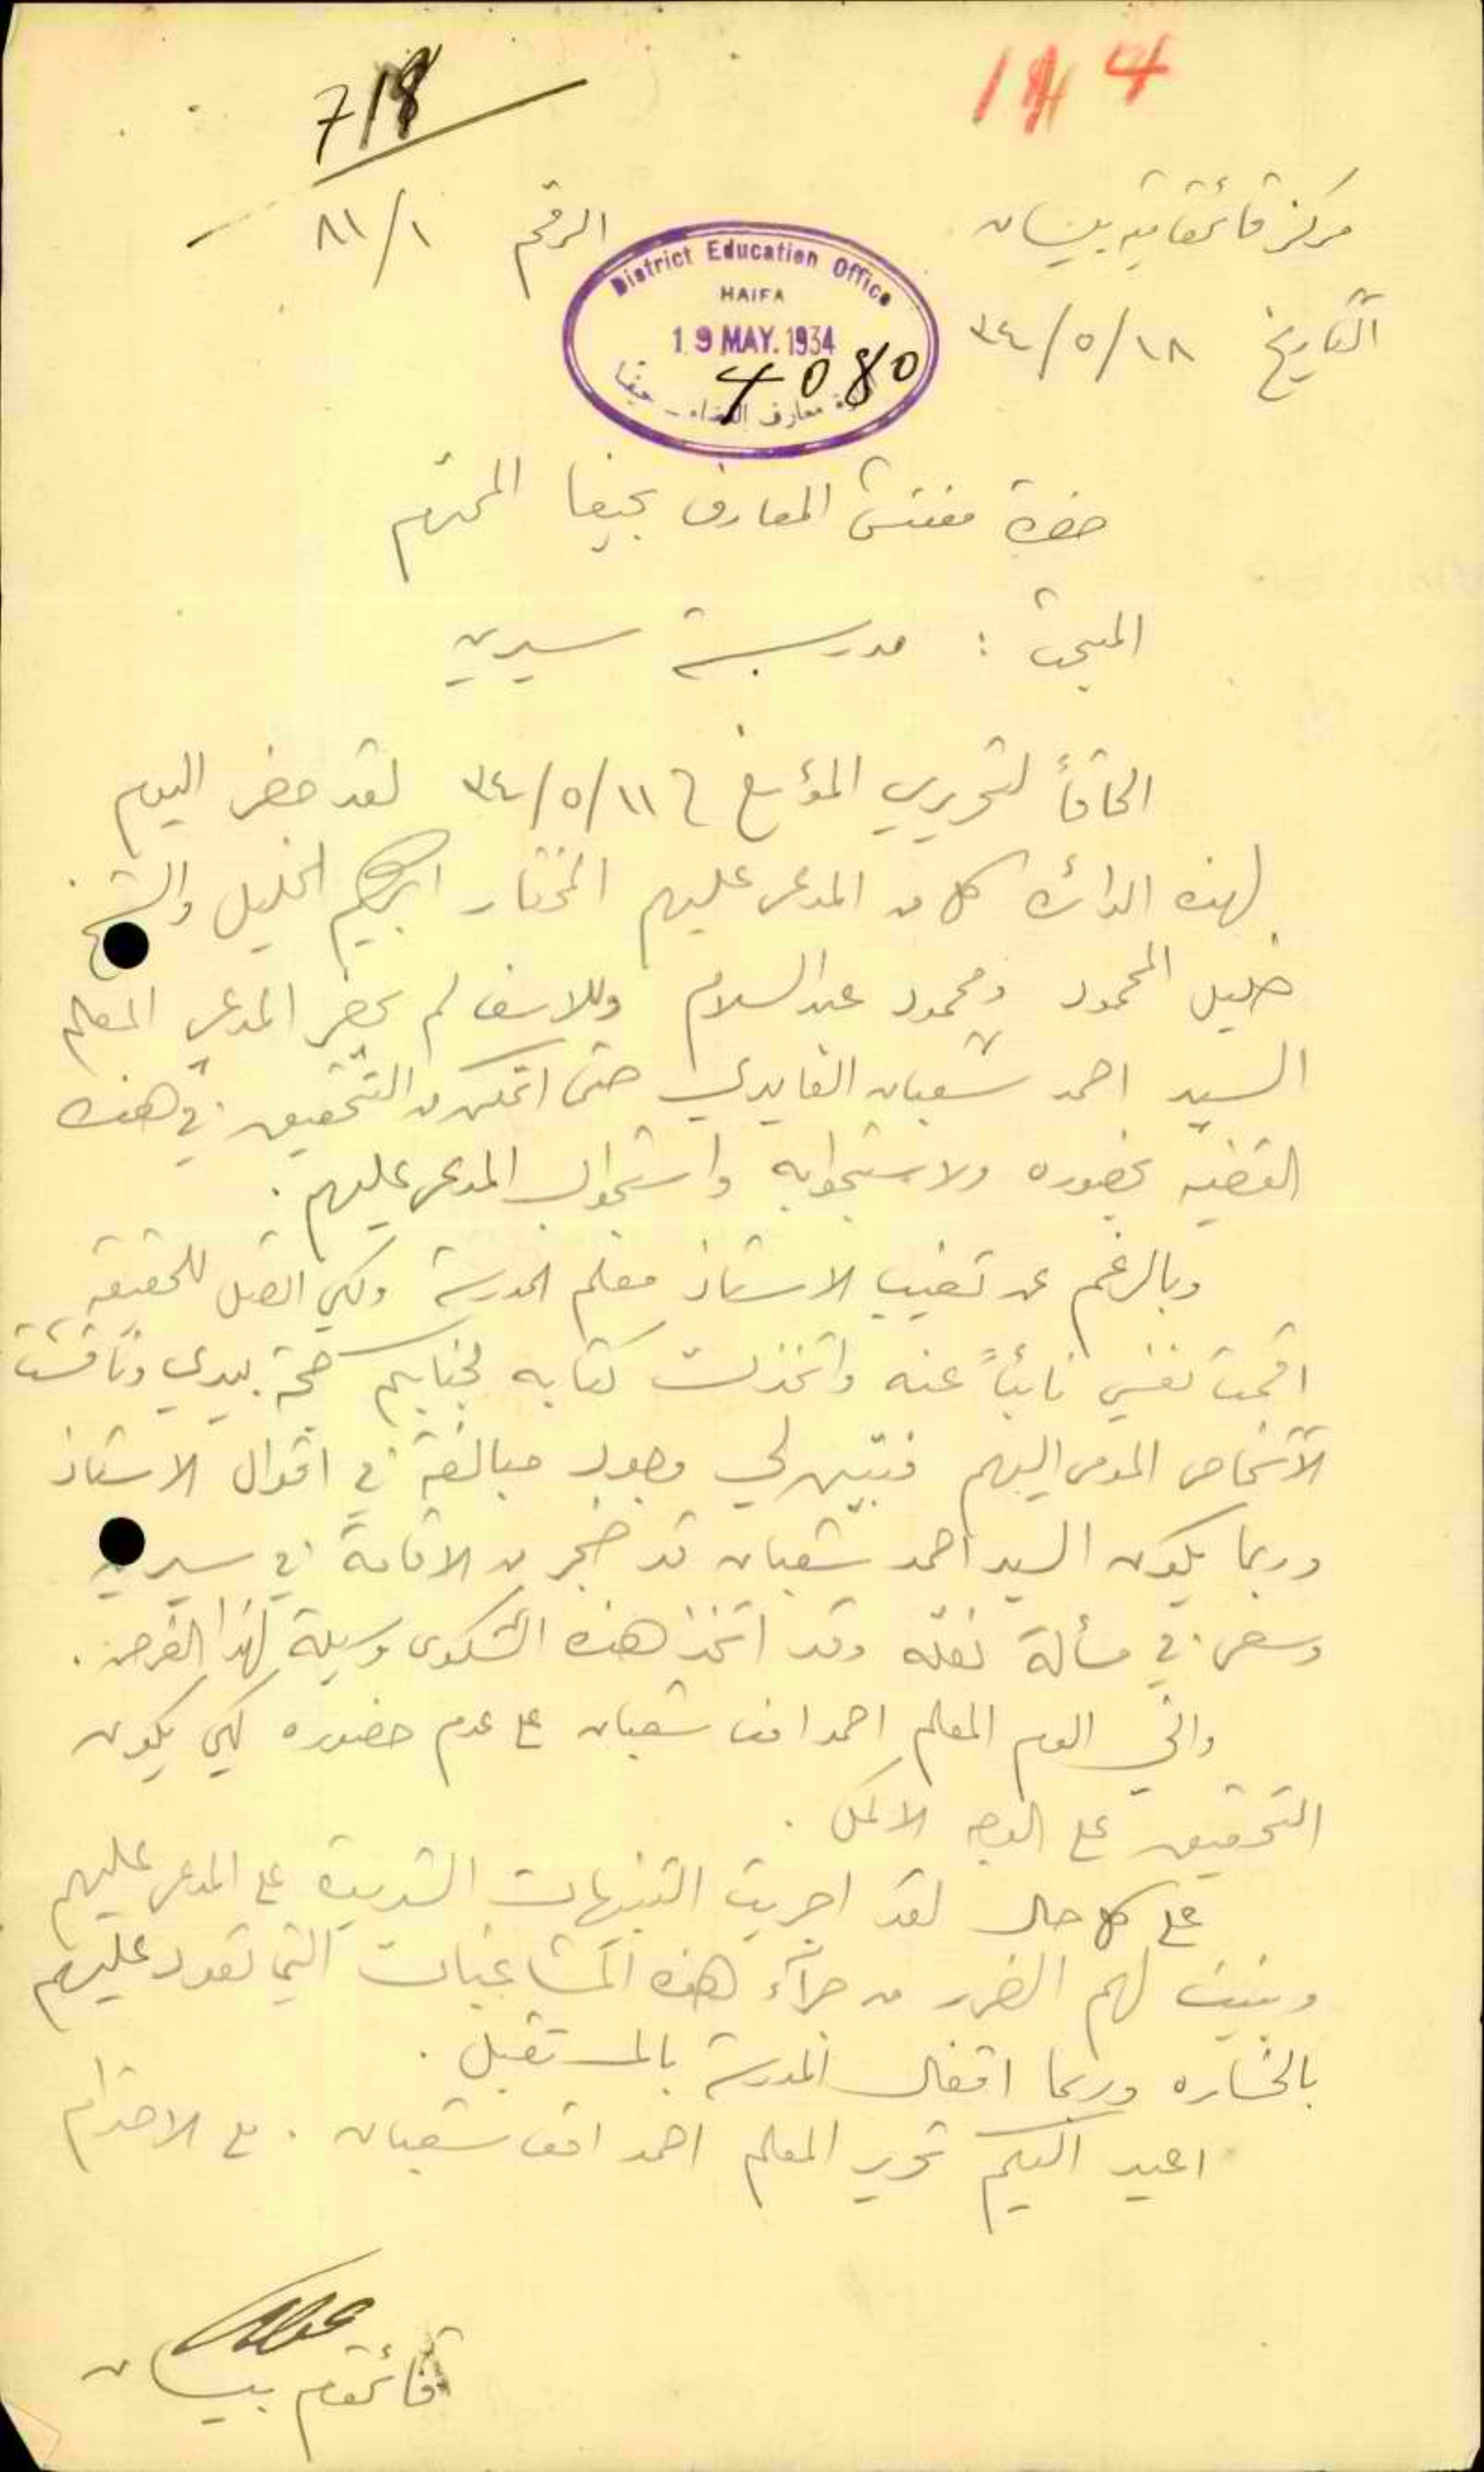 718
114
مركز قائمقامية بيسان
الرقم ٨١/١
التاريخ ١٨/٥/٣٤
District Education Office
HAIFA
19 MAY. 1934
4080
معارف القضاء - حيفا
حضرة مفتش المعارف بحيفا المحترم
المبحث : مدرسة سيرين
الحاقاً لتحريري المؤرخ في ١١/٥/٣٤ لقد حضر اليوم
لهذه الدائرة كل من المدعى عليهم المختار ابراهيم الخليل والشيخ
خليل المحمود ومحمود عبد السلام وللاسف لم يحضر المدعي المعلم
السيد احمد شعبان الفايدي حتى اتمكن من التحقيق في هذه
القضية بحضوره ولاستجوابه واستجواب المدعى عليهم .
وبالرغم عن تغيب الاستاذ معلم المدرسة ولكي اتصل للحقيقة
اقمت نفسي نائباً عنه واتخذت كتابه لجنابكم حجة بيدي وناقشت
الاشخاص المومى اليهم فتبين لي وجود مبالغة في اقوال الاستاذ
وربما يكون السيد احمد شعبان قد ضجر من الاقامة في سيرين
وسعى في مسألة نقله وقد اتخذ هذه الشكوى وسيلة لهذا الغرض .
واني الوم المعلم احمد افندي شعبان على عدم حضوره لكي يكون
التحقيق على الوجه الاكمل .
على كل حال لقد اجريت التنبيهات الشديدة على المدعى عليهم
وبينت لهم الضرر من جراء هذه المشاغبات التي تعود عليهم
بالخسارة وربما اقفال المدرسة بالمستقبل .
اعيد اليكم تحرير المعلم احمد افندي شعبان . مع الاحترام
قائمقام بيسان